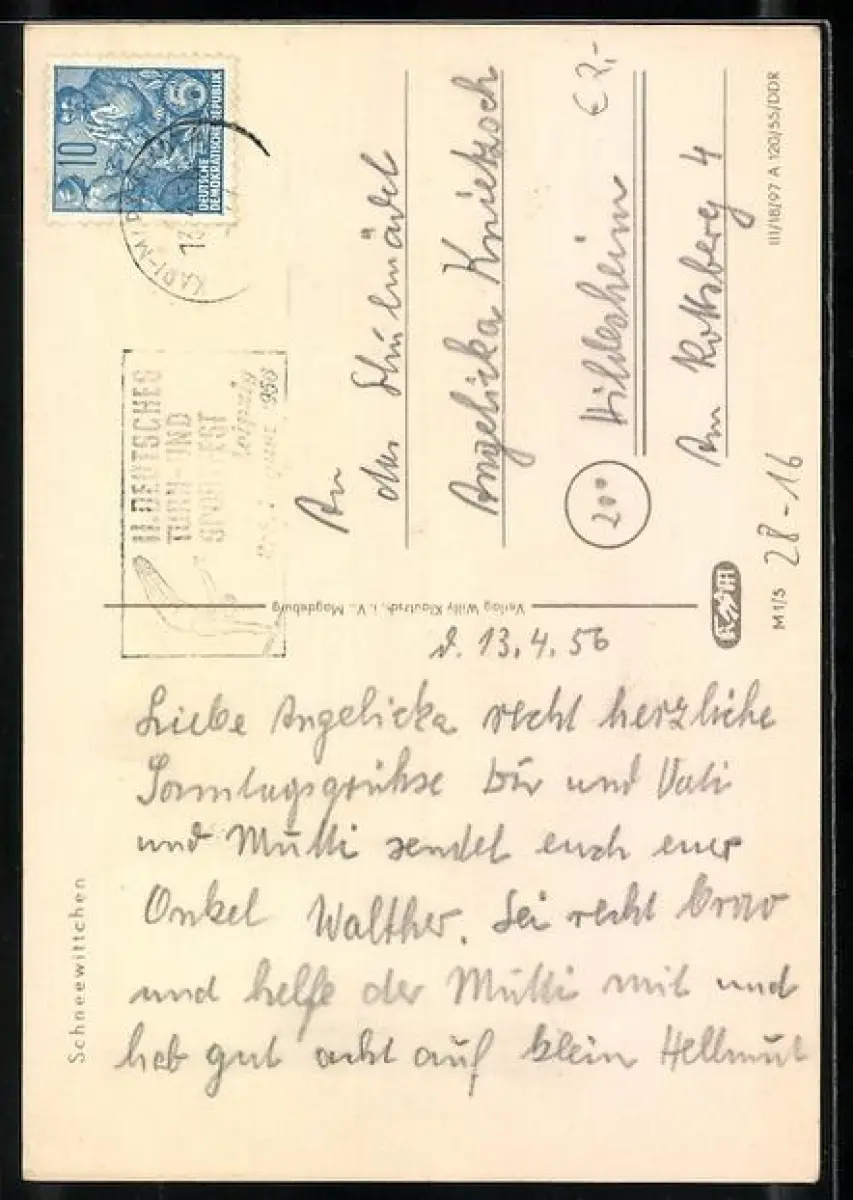 Schneewittchen
d. 13.4.56
Liebe Angelicka recht herzliche
Sonntagsgrühse Dir und Vati
und Mutti sendet euch euer
Onkel Walther. Sei recht brav
und helfe der Mutti mit und
heb gut acht auf klein Hellmut
Verlag Willy Klautzsch, i. V., Magdeburg
10
5
DEUTSCHE
DEMOKRATISCHE REPUBLIK
II. DEUTSCHES
TURN- UND
SPORTFEST
Leipzig
1956
An
das Schulmädel
Angelicka Knietzsch
20a
Hildesheim
Am Rottsberg 4
€ 2,-
III/18/97 A 120/55/DDR
M 1/S
28-16